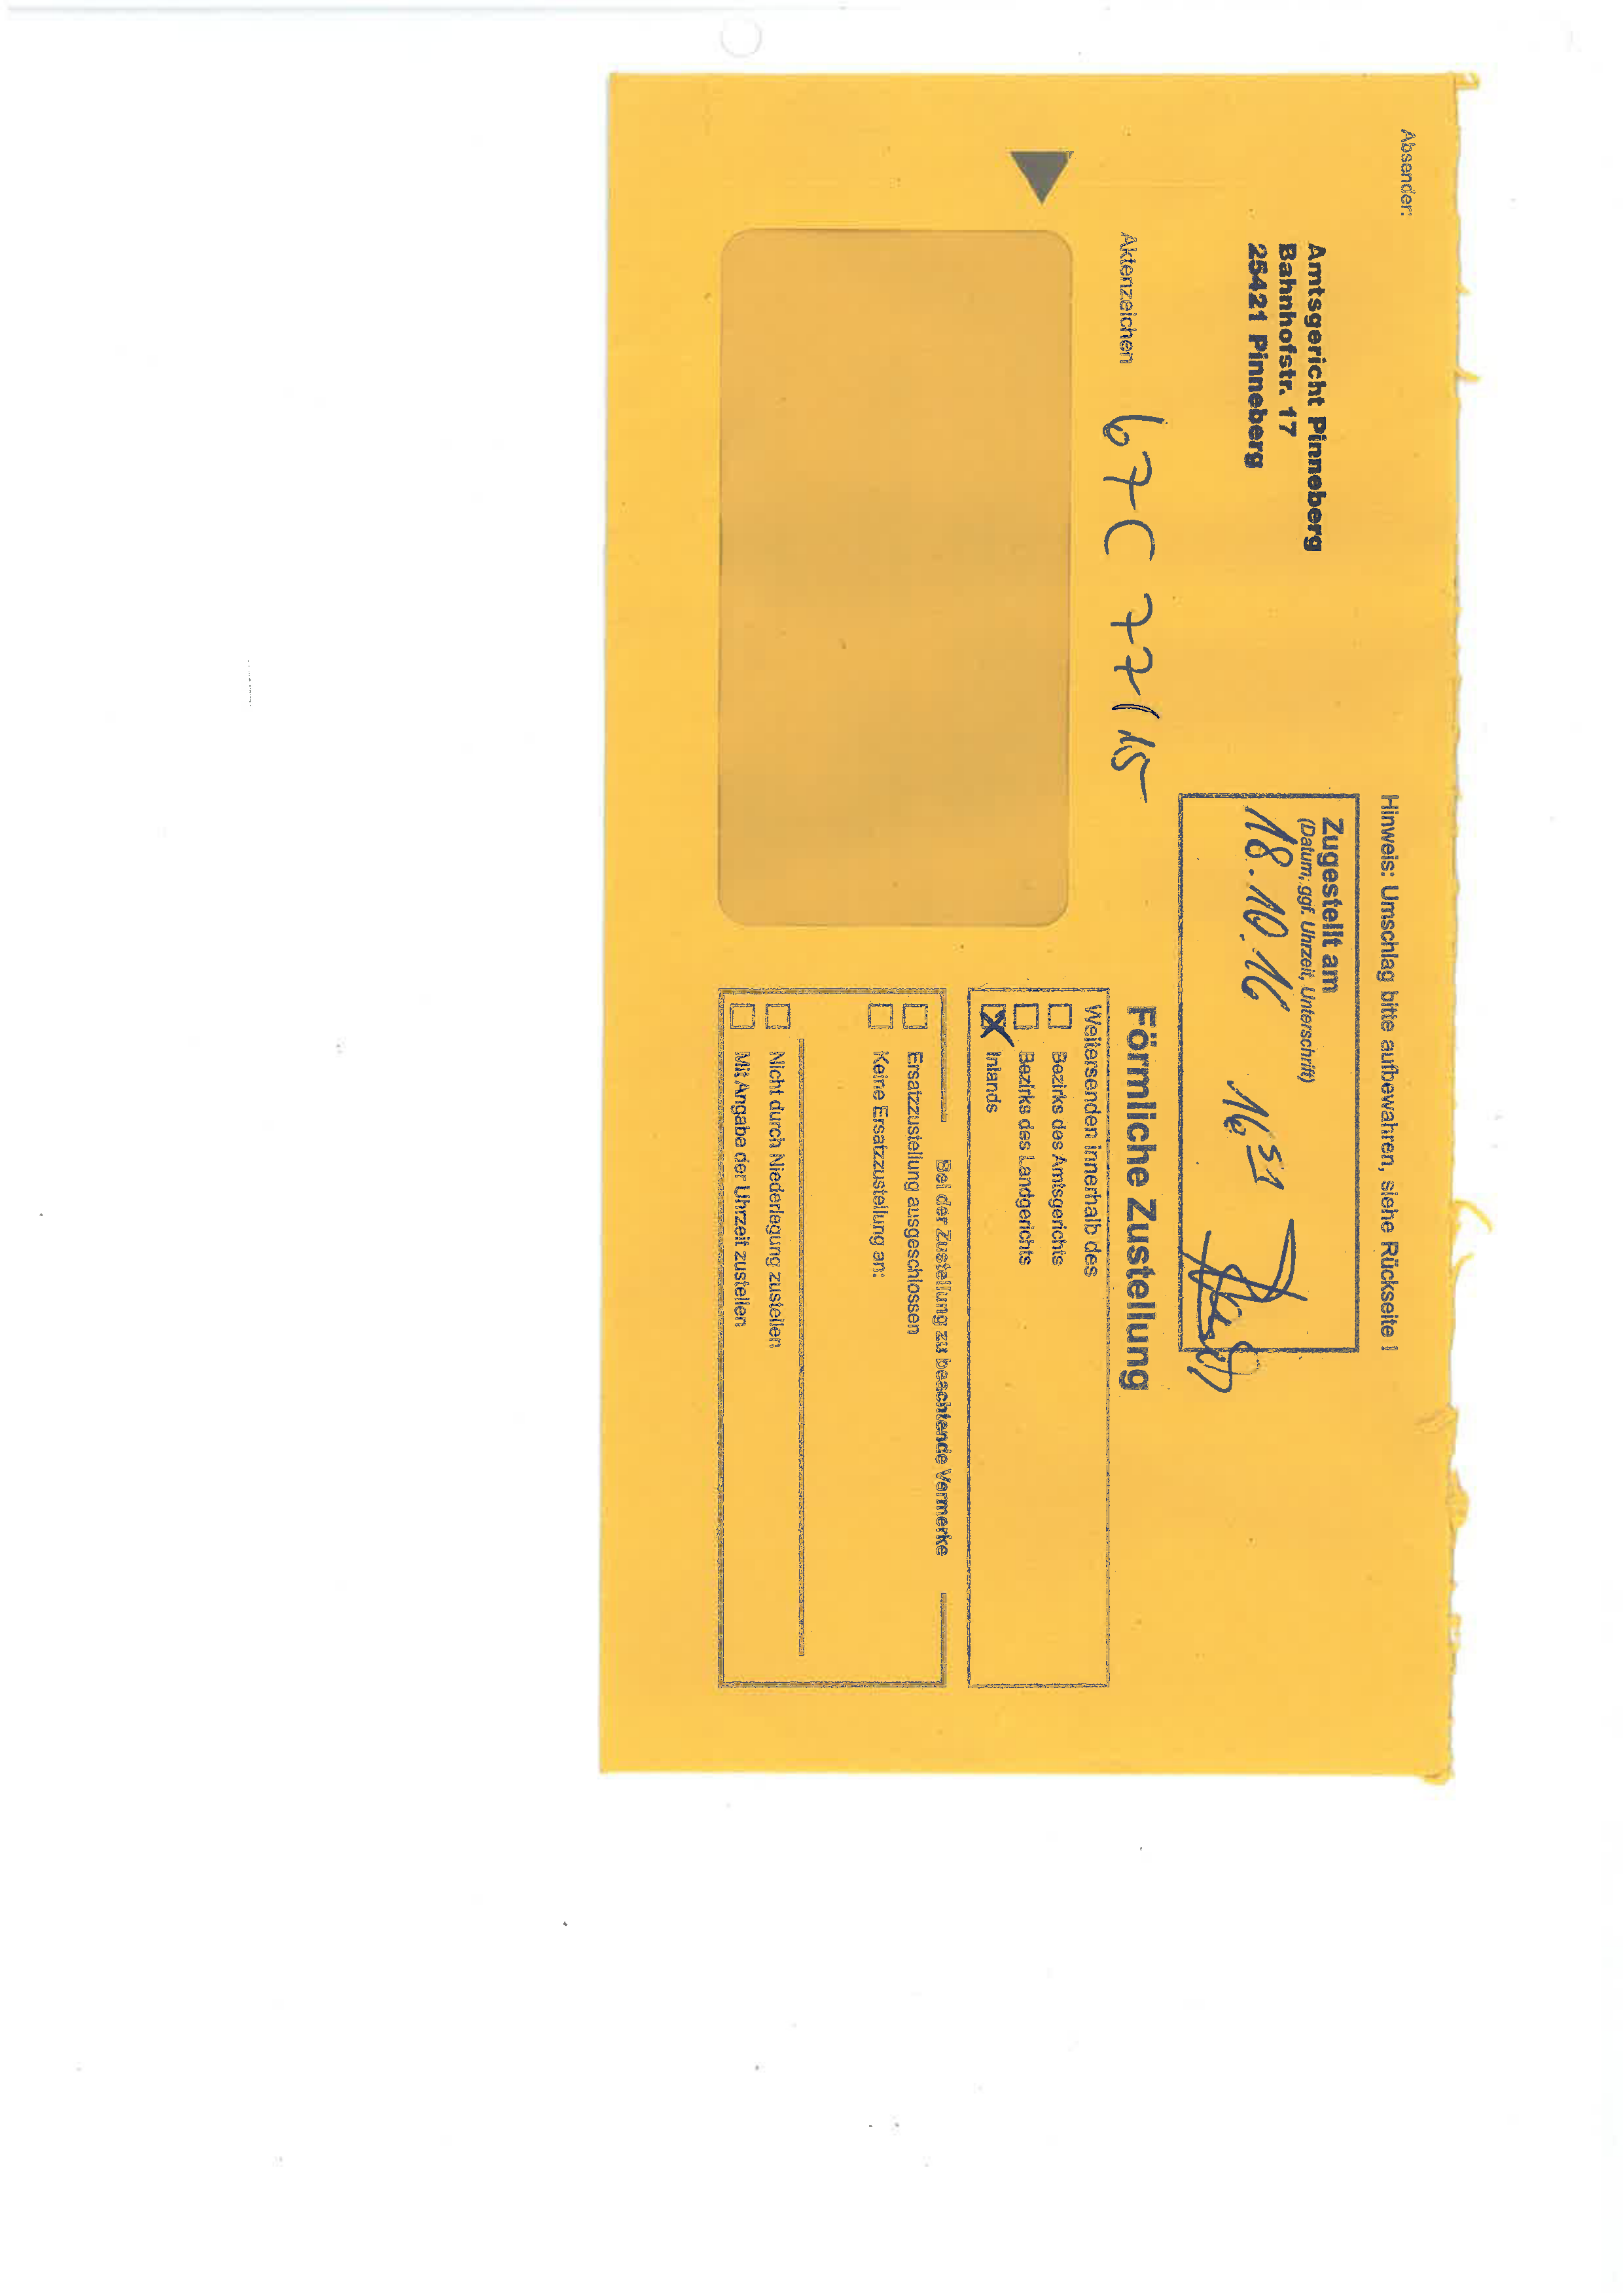 Absender:
Amtsgericht Pinneberg
Bahnhofstr. 17
25421 Pinneberg
Hinweis: Umschlag bitte aufbewahren, siehe Rückseite !
Zugestellt am
(Datum, ggf. Uhrzeit, Unterschrift)
18.10.16
Aktenzeichen 67C 77/15
Förmliche Zustellung
Weitersenden innerhalb des
Bezirks des Amtsgerichts
Bezirks des Landgerichts
Inlands
Bei der Zustellung zu beachtende Vermerke
Ersatzzustellung ausgeschlossen
Keine Ersatzzustellung an:
Nicht durch Niederlegung zustellen
Mit Angabe der Uhrzeit zustellen